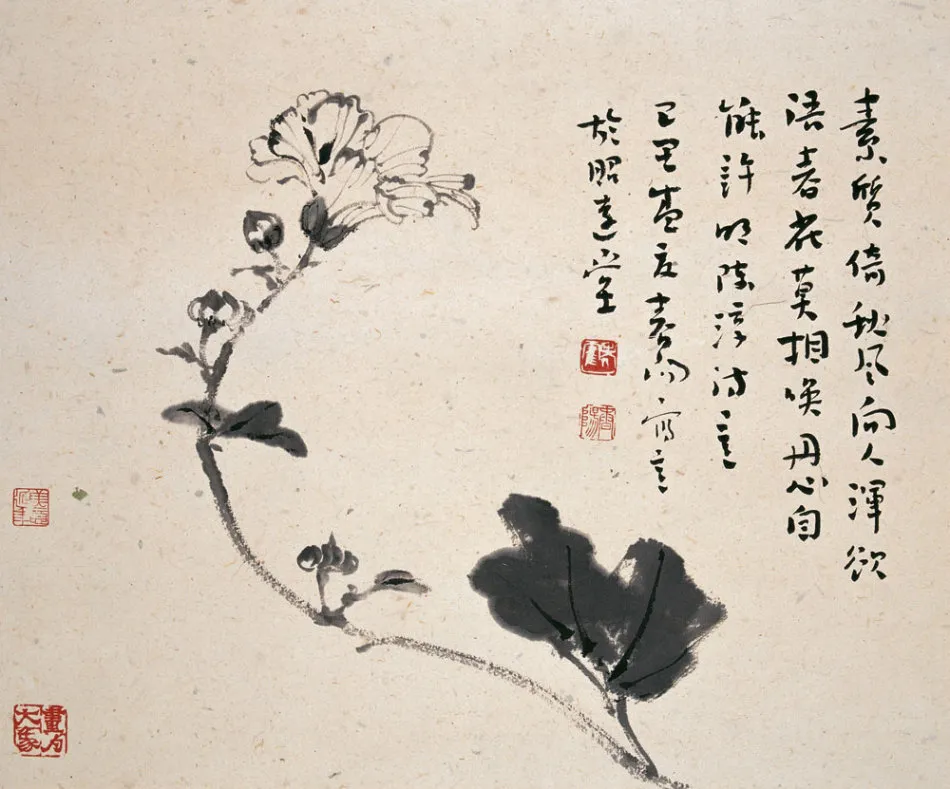 素質倚秋風向人渾欲
語春花莫相喚丹心自
能許明陳淳詩意
己丑盛夏寫意
於昭遠堂